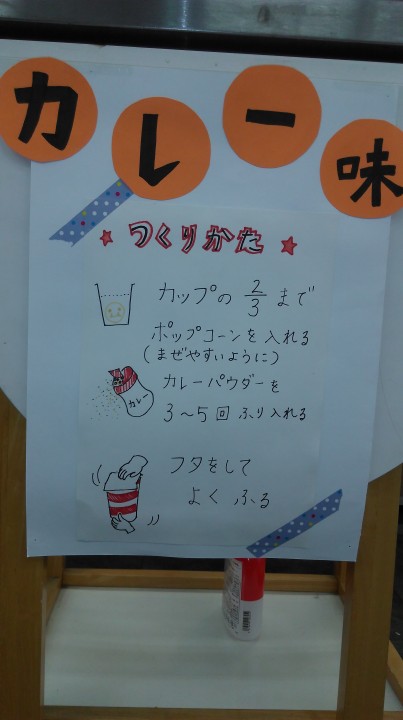 カレー味
つくりかた
カップの 2/3 まで
ポップコーンを入れる
(まぜやすいように)
カレー
カレーパウダーを
3〜5回 ふり入れる
フタをして
よく ふる